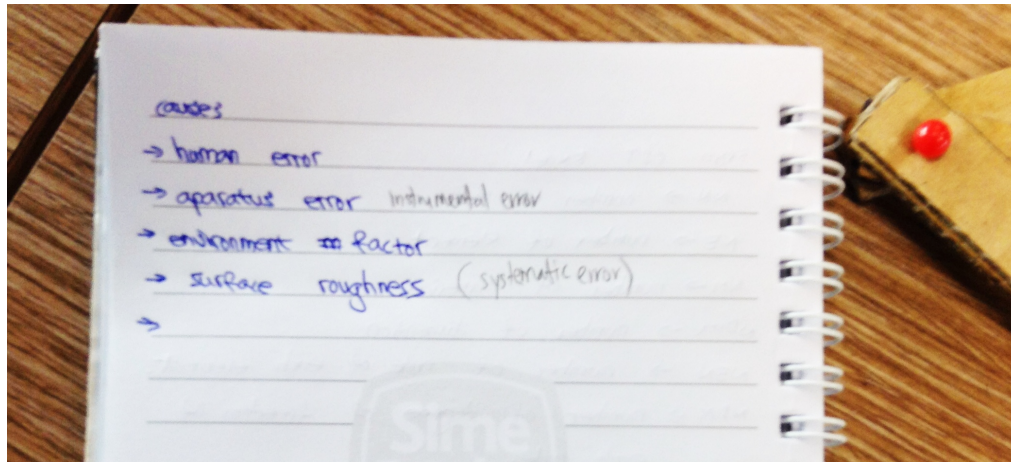 causes
→ human error
→ aparatus error instrumental error
→ environment factor
→ surface roughness (systematic error)
→
Sime